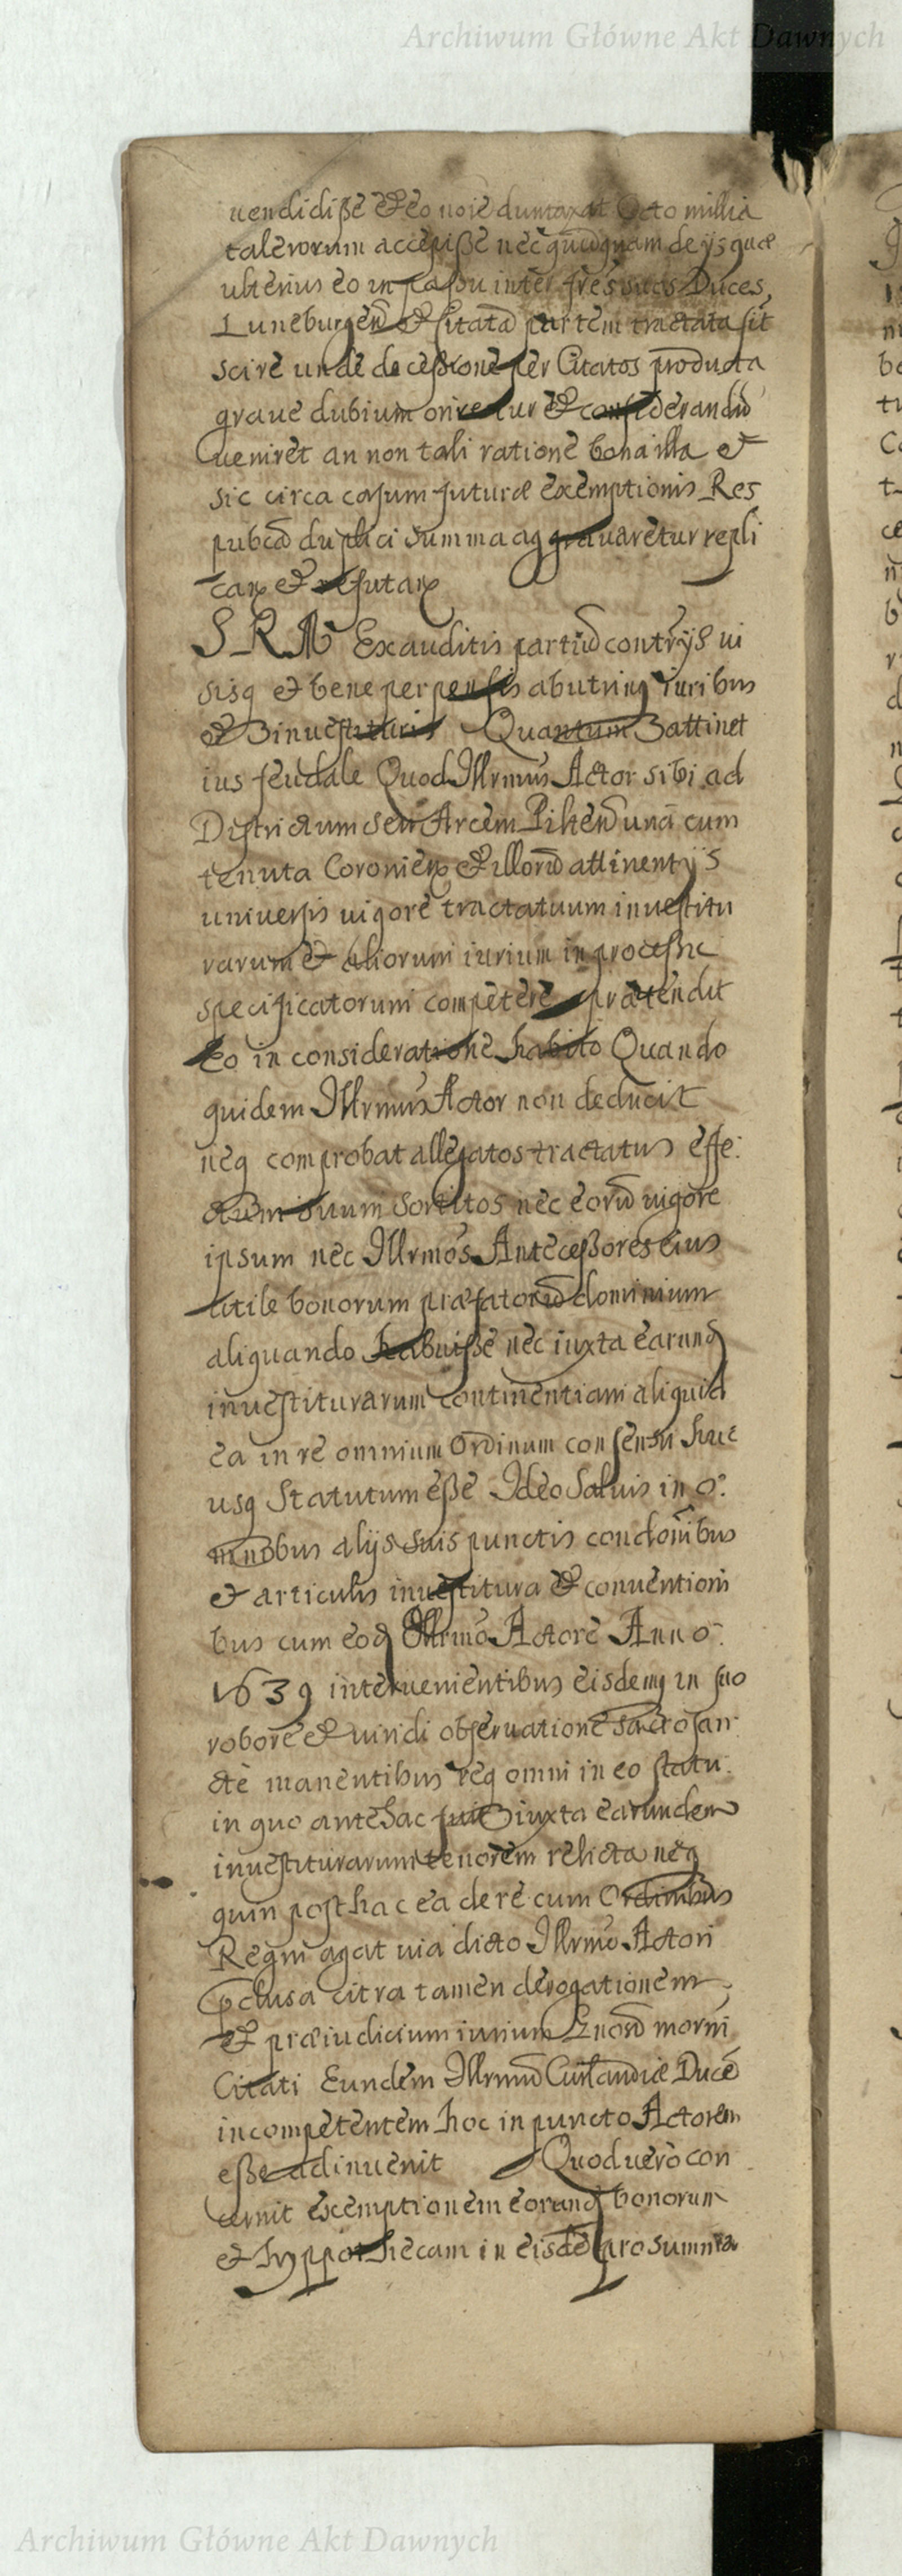 Archiwum Główne Akt Dawnych
uendidiße et eo noie dumtaxat Octo millia
talerorum accepiße nec quidquam de ijs quæ
ulterius eo in paßu inter frēs suos Duces
Luneburgen̄ et Citatā partem tractata sit
scire unde de ceßione per Citatos producta
graue dubium oriretur et considerandū
ueniret an non tali ratione bona illa et
sic circa casum futuræ exemptionis Res
pubcā duplici summa aggrauaretur repli
can et refutan
S R M Ex auditis partiū contrijs ui
sisq et bene perpensis ab utrinq iuribus
et inuestituris Quantum attinet
ius feudale Quod Illrmus Actor sibi ad
Districtum seu Arcem Pilten̄ unā cum
tenuta Coronien et illorū attinentijs
uniuersis uigore tractatuum inuestitu
rarum et aliorum iurium in proceßu
specificatorum competere prætendit
Eo in consideratione habito Quando
quidem Illrmus Actor non deducit
neq comprobat allegatos tractatus effe:
ctum suum sortitos nec eorū uigore
ipsum nec Illrmos Anteceßores eius
utile bonorum præfatorū dominium
aliquando habuiße nec iuxta earund
inuestiturarum continentiam aliquid
ea in re omnium Ordinum consensu huc
usq Statutum eße Ideo Saluis in o:
mnibus alijs suis punctis condonibus
et articulis inuestitura et conuentioni
bus cum eod Illrmo Actore Anno:
1639 interuenientibus eisdemq in suo
robore et uiridi obseruatione sacrosan:
cte manentibus req omni in eo statu:
in quo antehac fuit iuxta earundem
inuestiturarum tenorem relicta neq
quin posthac ea de re cum Ordinibus
Regni agat uia dicto Illrmo Actori
pclusa citra tamen derogationem
et præiudicium iurium Gnosi morni
Citati Eundem Illrmū Curlandiæ Ducē
incompetentem hoc in puncto Actorem
eße adinuenit Quod uerò con
cernit exemptionem eorund bonorum
et hyppothecam in eisdē pro summa
Archiwum Główne Akt Dawnych